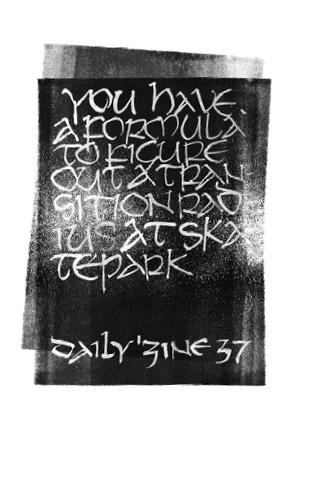 YOU HAVE
A FORMULA
TO FIGURE
OUT A TRAN
SITION RAD
IUS AT SKA
TEPARK
DAILY 'ZINE 37